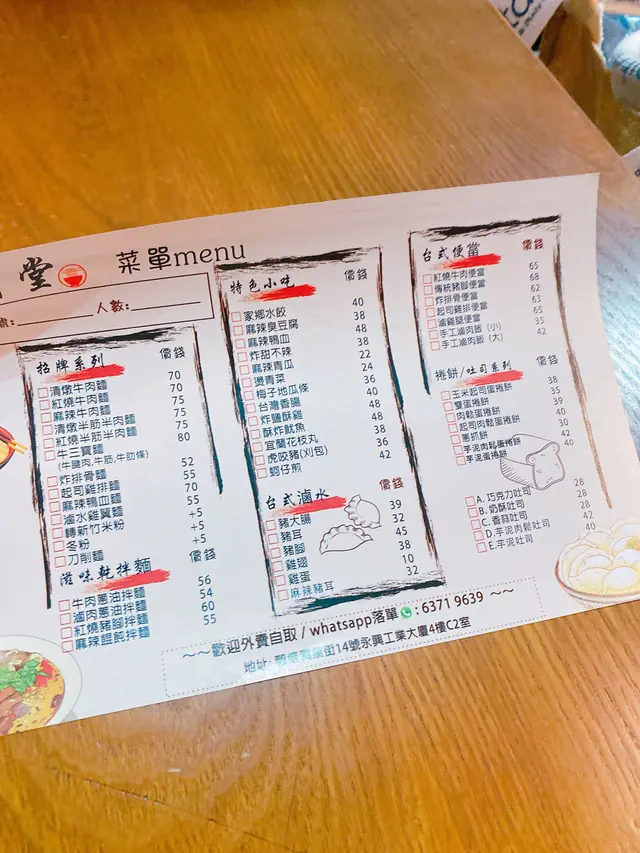 堂 菜單menu
人數:
招牌系列 價錢
清燉牛肉麵 70
紅燒牛肉麵 70
麻辣牛肉麵 75
清燉半筋半肉麵 75
紅燒半筋半肉麵 75
牛三寶麵 80
(牛腱肉,牛筋,牛肋條)
炸排骨麵 52
起司雞排麵 55
麻辣鴨血麵 70
滷水雞翼麵 55
轉新竹米粉 +5
冬粉 +5
刀削麵 +5
滋味乾拌麵 價錢
牛肉蔥油拌麵 56
滷肉蔥油拌麵 54
紅燒豬腳拌麵 60
麻辣餛飩拌麵 55
特色小吃 價錢
家鄉水餃 40
麻辣臭豆腐 38
麻辣鴨血 48
炸甜不辣 38
麻辣青瓜 22
燙青菜 24
梅子地瓜條 36
台灣香腸 40
炸鹽酥雞 48
酥炸魷魚 48
宜蘭花枝丸 38
虎咬豬(刈包) 36
蚵仔煎 42
台式滷水 價錢
豬大腸 39
豬耳 32
豬腳 45
雞翅 38
雞蛋 10
麻辣豬耳 32
台式便當 價錢
紅燒牛肉便當 65
傳統豬腳便當 68
炸排骨便當 62
起司雞排便當 63
滷雞腿便當 65
手工滷肉飯 (小) 35
手工滷肉飯 (大) 42
捲餅/吐司系列 價錢
玉米起司蛋捲餅 38
雙蛋捲餅 35
肉鬆蛋捲餅 39
起司肉鬆蛋捲餅 40
蔥抓餅 30
芋泥肉鬆蛋捲餅 42
芋泥蛋捲餅 40
A. 巧克力吐司 28
B. 奶酥吐司 28
C. 香蒜吐司 28
D. 芋泥肉鬆吐司 42
E. 芋泥吐司 40
~~歡迎外賣自取 / whatsapp落單 : 6371 9639 ~~
地址: 觀塘興業街14號永興工業大廈4樓C2室